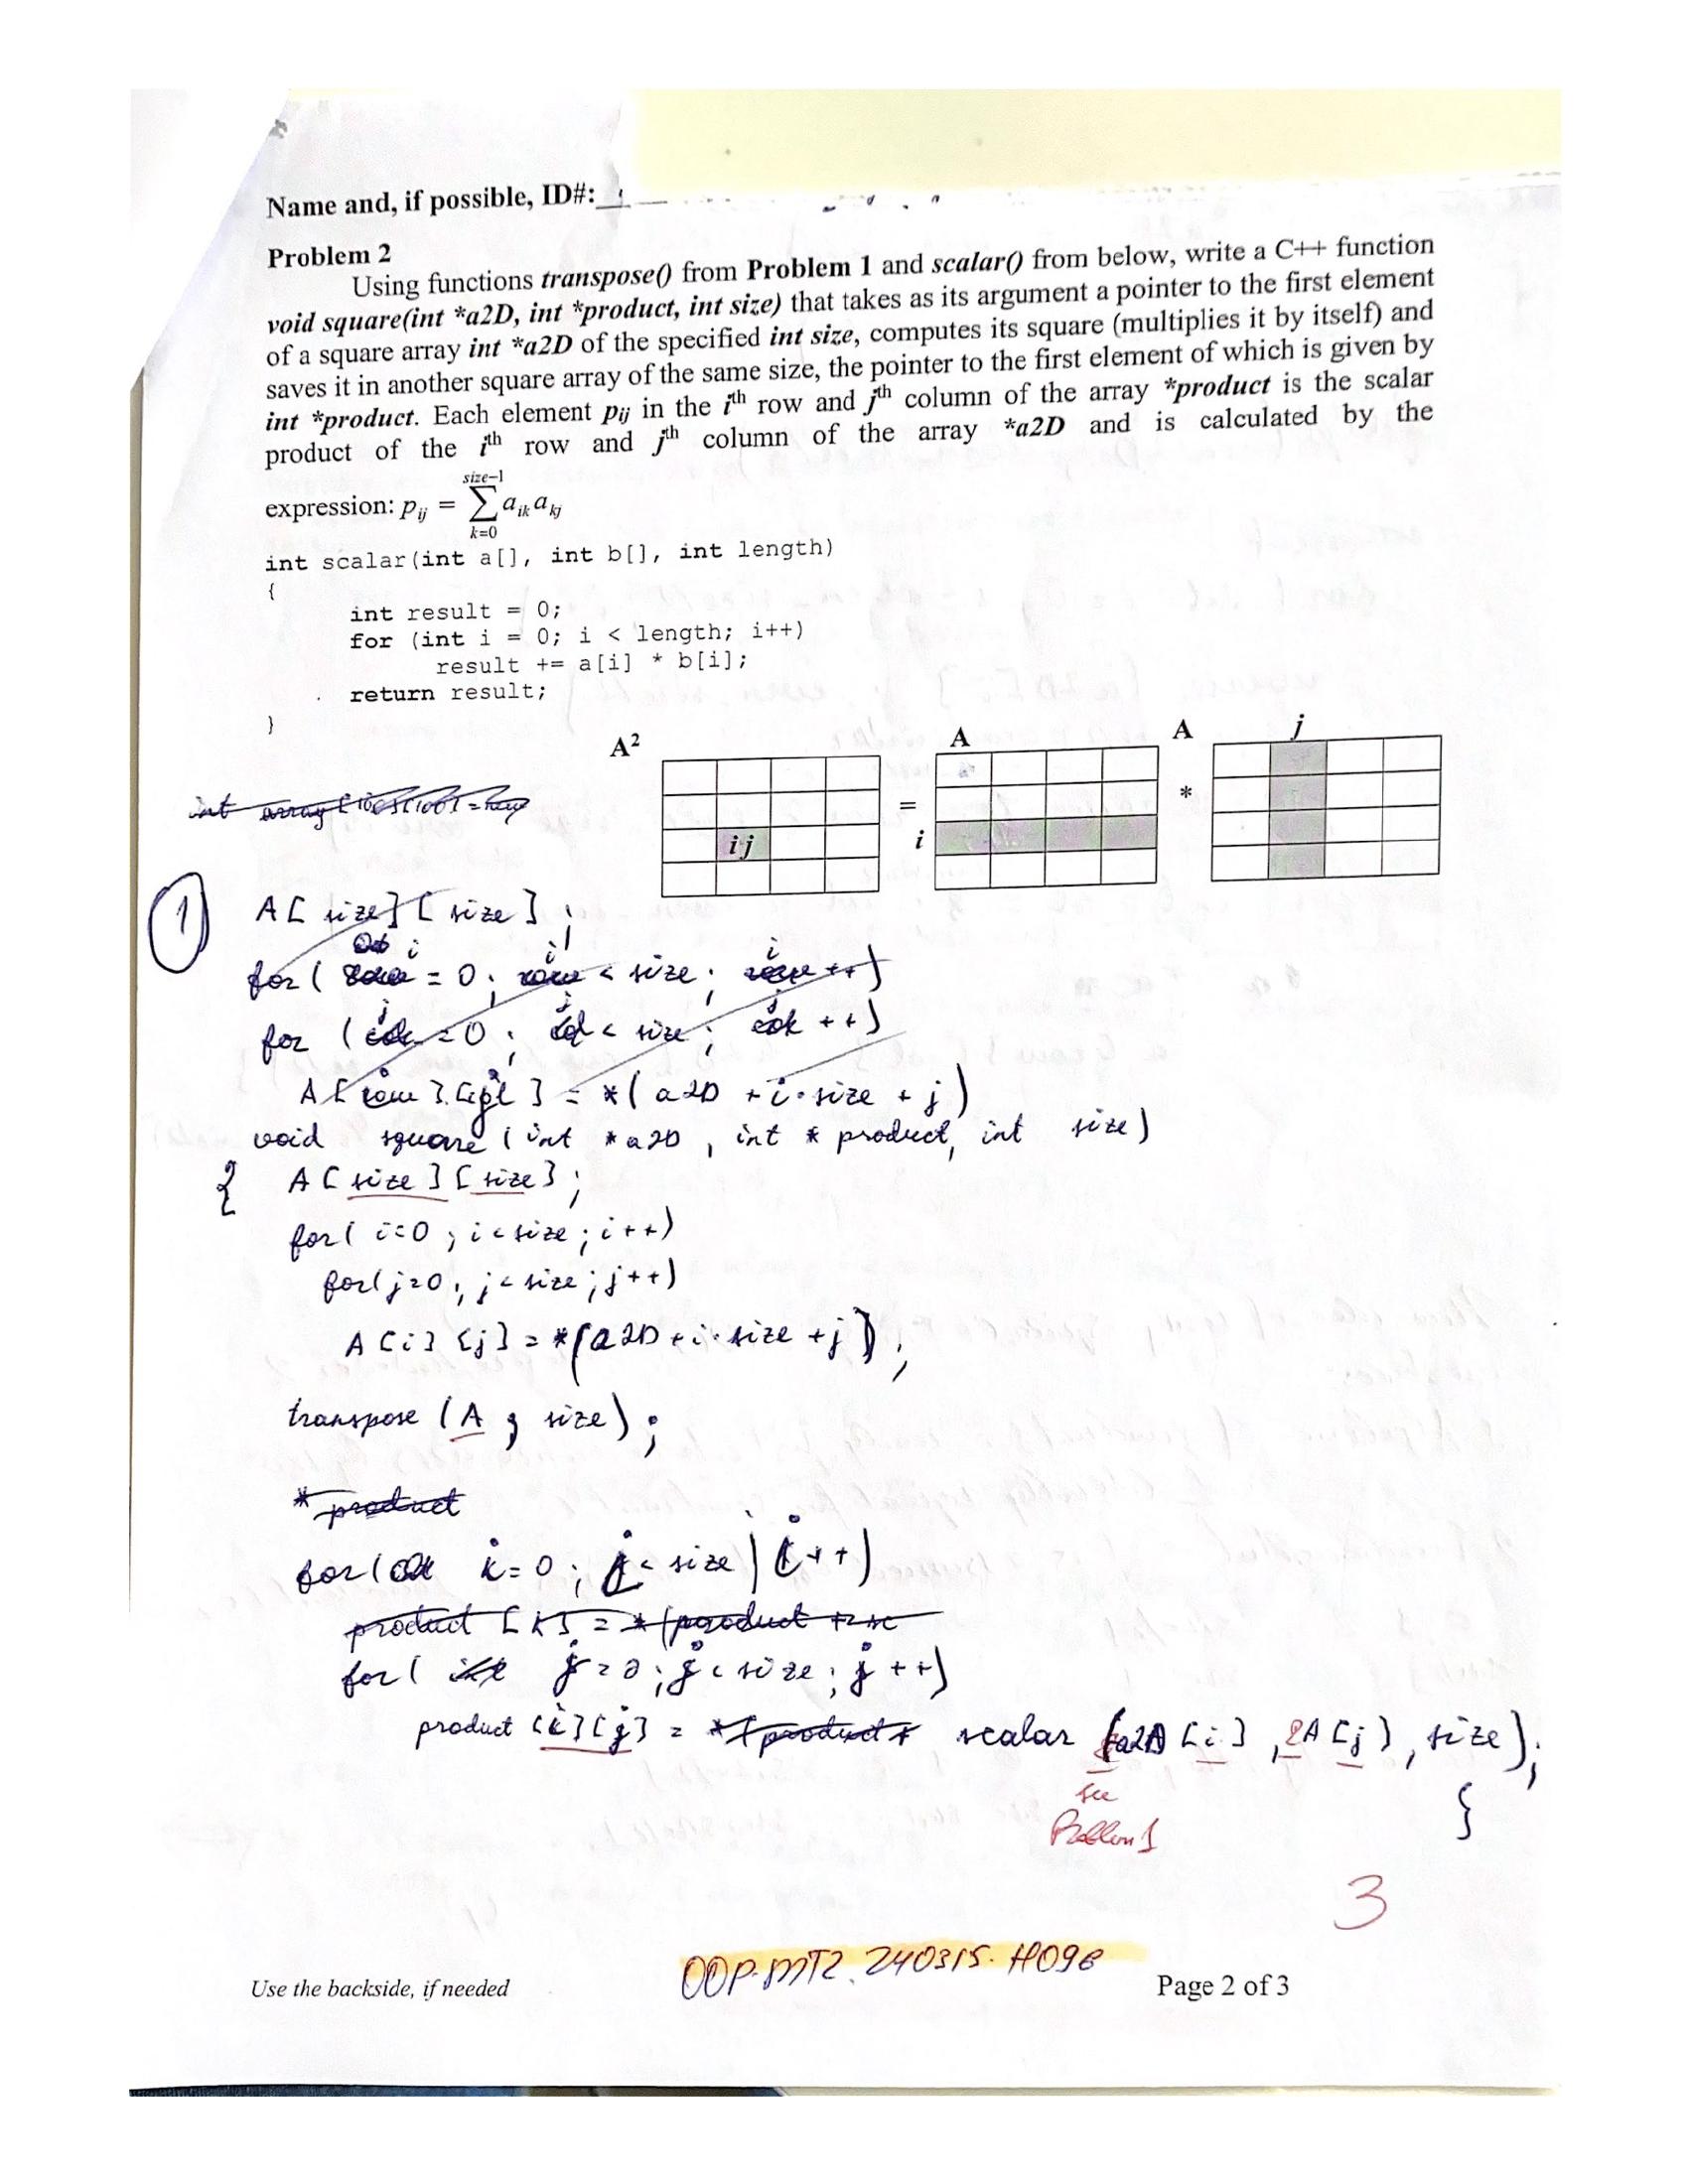 Name and, if possible, ID#:
Problem 2
Using functions transpose() from Problem 1 and scalar() from below, write a C++ function
void square(int *a2D, int *product, int size) that takes as its argument a pointer to the first element
of a square array int *a2D of the specified int size, computes its square (multiplies it by itself) and
saves it in another square array of the same size, the pointer to the first element of which is given by
int *product. Each element pij in the ith row and jth column of the array *product is the scalar
product of the ith row and jth column of the array *a2D and is calculated by the
expression: pij = size-1 ∑ k=0 aik akj
int scalar(int a[], int b[], int length)
{
int result = 0;
for (int i = 0; i < length; i++)
result += a[i] * b[i];
return result;
}
A² A A j
ij = i *
int array [100][100] =
1
A[ size][ size ] ;
for ( i = 0; i < size; i ++)
for ( j = 0; j < size; j ++)
A[ i ][ j ] = *( a2D + i·size + j )
void square ( int *a2D , int * product, int size)
{ A[ size ][ size ];
for( i=0 ; i<size ; i++)
for(j=0 ; j< size ; j++)
A[i] [j] = *(a2D + i·size + j );
transpose (A , size) ;
* product
for( i=0 ; i< size ; i++)
product [k] = *(product +
for( j=0 ; j< size ; j++)
product [i][j] = *(product+ scalar (a2D [i] , A[j] , size);
see
Problem 1
}
3
OOP.MT2.240315.H096
Use the backside, if needed
Page 2 of 3